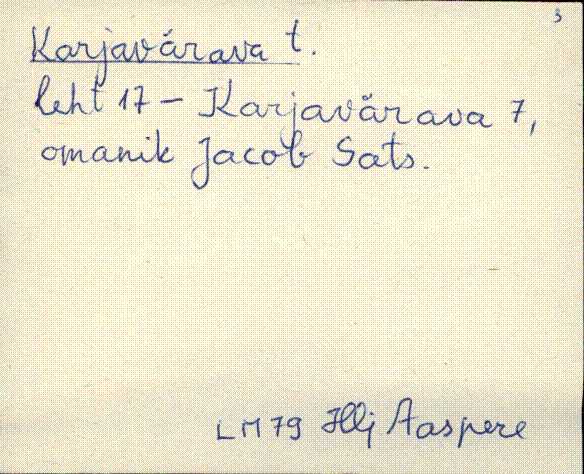 3
Karjavärava t.
leht 17 - Karjavärava 7,
omanik Jacob Sats.
LM79 Illj Aaspere